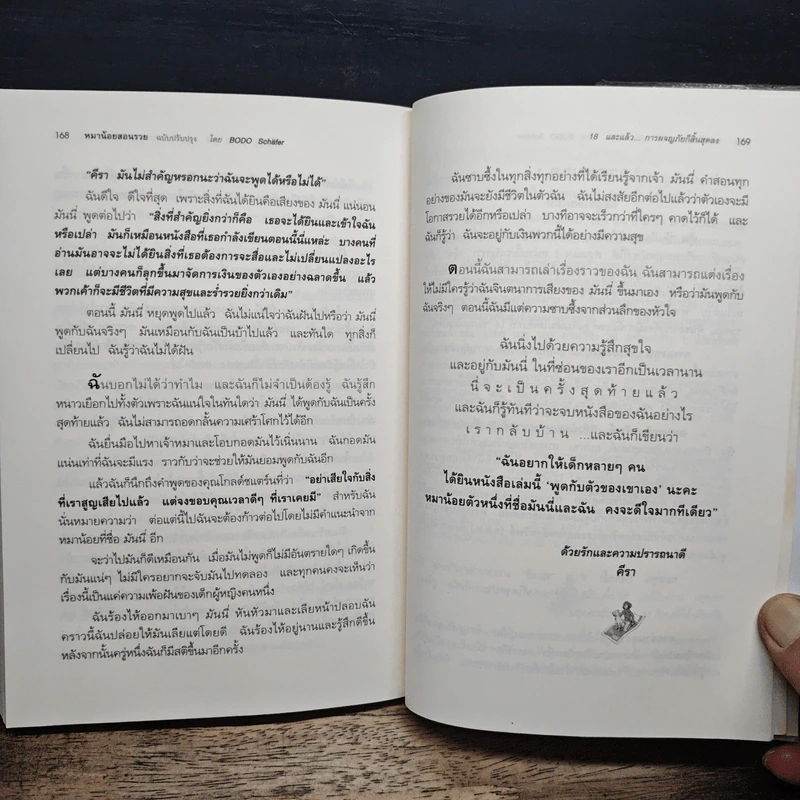 168 หมาน้อยสอนรวย ฉบับปรับปรุง โดย BODO Schäfer
"คีรา มันไม่สำคัญหรอกนะว่าฉันจะพูดได้หรือไม่ได้"
ฉันดีใจ ดีใจที่สุด เพราะสิ่งที่ฉันได้ยินคือเสียงของ มันนี่ แน่นอน
มันนี่ พูดต่อไปว่า "สิ่งที่สำคัญยิ่งกว่าก็คือ เธอจะได้ยินและเข้าใจฉัน
หรือเปล่า มันก็เหมือนหนังสือที่เธอกำลังเขียนตอนนี้นี่แหละ บางคนที่
อ่านมันอาจจะไม่ได้ยินสิ่งที่เธอต้องการจะสื่อและไม่เปลี่ยนแปลงอะไร
เลย แต่บางคนก็ลุกขึ้นมาจัดการเงินของตัวเองอย่างฉลาดขึ้น แล้ว
พวกเค้าก็จะมีชีวิตที่มีความสุขและร่ำรวยยิ่งกว่าเดิม"
ตอนนี้ มันนี่ หยุดพูดไปแล้ว ฉันไม่แน่ใจว่าฉันฝันไปหรือว่า มันนี่
พูดกับฉันจริงๆ มันเหมือนกับฉันเป็นบ้าไปแล้ว และทันใด ทุกสิ่งก็
เปลี่ยนไป ฉันรู้ว่าฉันไม่ได้ฝัน
ฉันบอกไม่ได้ว่าทำไม และฉันก็ไม่จำเป็นต้องรู้ ฉันรู้สึก
หนาวเยือกไปทั้งตัวเพราะฉันแน่ใจในทันใดว่า มันนี่ ได้พูดกับฉันเป็นครั้ง
สุดท้ายแล้ว ฉันไม่สามารถอดกลั้นความเศร้าโศกไว้ได้อีก
ฉันยื่นมือไปหาเจ้าหมาและโอบกอดมันไว้เนิ่นนาน ฉันกอดมัน
แน่นเท่าที่ฉันจะมีแรง ราวกับว่าจะช่วยให้มันยอมพูดกับฉันอีก
แล้วฉันก็นึกถึงคำพูดของคุณโกลด์ชแตร์นที่ว่า "อย่าเสียใจกับสิ่ง
ที่เราสูญเสียไปแล้ว แต่จงขอบคุณเวลาดีๆ ที่เราเคยมี" สำหรับฉัน
นั่นหมายความว่า ต่อแต่นี้ไปฉันจะต้องก้าวต่อไปโดยไม่มีคำแนะนำจาก
หมาน้อยที่ชื่อ มันนี่ อีก
จะว่าไปมันก็ดีเหมือนกัน เมื่อมันไม่พูดก็ไม่มีอันตรายใดๆ เกิดขึ้น
กับมันแน่ๆ ไม่มีใครอยากจะจับมันไปทดลอง และทุกคนคงจะเห็นว่า
เรื่องนี้เป็นแค่ความเพ้อฝันของเด็กผู้หญิงคนหนึ่ง
ฉันร้องไห้ออกมาเบาๆ มันนี่ หันหัวมาและเลียหน้าปลอบฉัน
คราวนี้ฉันปล่อยให้มันเลียแต่โดยดี ฉันร้องไห้อยู่นานและรู้สึกดีขึ้น
หลังจากนั้นครู่หนึ่งฉันก็มีสติขึ้นมาอีกครั้ง
18 และแล้ว... การผจญภัยก็สิ้นสุดลง 169
ฉันซาบซึ้งในทุกสิ่งทุกอย่างที่ได้เรียนรู้จากเจ้า มันนี่ คำสอนทุก
อย่างของมันจะยังมีชีวิตในตัวฉัน ฉันไม่สงสัยอีกต่อไปแล้วว่าตัวเองจะมี
โอกาสรวยได้อีกหรือเปล่า บางทีอาจจะเร็วกว่าที่ใครๆ คาดไว้ก็ได้ และ
ฉันก็รู้ว่า ฉันจะอยู่กับเงินพวกนี้ได้อย่างมีความสุข
ตอนนี้ฉันสามารถเล่าเรื่องราวของฉัน ฉันสามารถแต่งเรื่อง
ให้ไม่มีใครรู้ว่าฉันจินตนาการเสียงของ มันนี่ ขึ้นมาเอง หรือว่ามันพูดกับ
ฉันจริงๆ ตอนนี้ฉันมีแต่ความซาบซึ้งจากส่วนลึกของหัวใจ
ฉันนิ่งไปด้วยความรู้สึกสุขใจ
และอยู่กับมันนี่ ในที่ซ่อนของเราอีกเป็นเวลานาน
นี่จะเป็นครั้งสุดท้ายแล้ว
และฉันก็รู้ทันทีว่าจะจบหนังสือของฉันอย่างไร
เรากลับบ้าน ...และฉันก็เขียนว่า
"ฉันอยากให้เด็กหลายๆ คน
ได้ยินหนังสือเล่มนี้ 'พูดกับตัวของเขาเอง' นะคะ
หมาน้อยตัวหนึ่งที่ชื่อมันนี่และฉัน คงจะดีใจมากทีเดียว"
ด้วยรักและความปรารถนาดี
คีรา